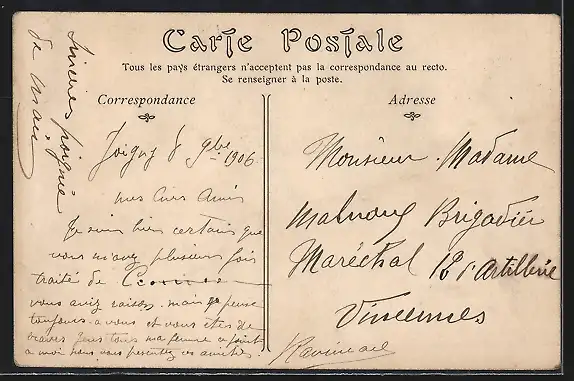 Carte Postale
Tous les pays étrangers n'acceptent pas la correspondance au recto.
Se renseigner à la poste.
Correspondance
Adresse
Sincères poignée
de main
Joigny 8 9bre 1906
mes chers Amis
Je suis bien certain que
vous m'avez plusieurs fois
traité de
vous aviez raison. mais je pense
toujours a vous et vous êtes de
braves gens tous ma femme se joint
a moi pour vous présenter ces amitiés.
Monsieur Madame
Brigadier
Maréchal 12e d'Artillerie
Vincennes